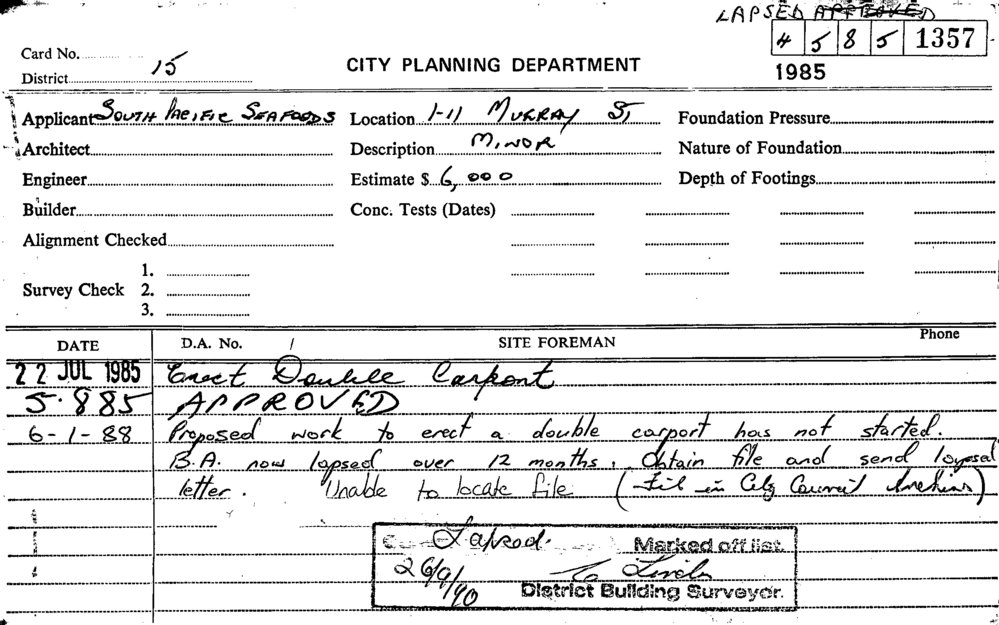 LAPSED APPROVED
4 5 8 5 1357
1985
Card No.
District 15
CITY PLANNING DEPARTMENT
Applicant SOUTH PACIFIC SEAFOODS Location 1-11 MURRAY ST Foundation Pressure
Architect Description MINOR Nature of Foundation
Engineer Estimate $ 6,000 Depth of Footings
Builder Conc. Tests (Dates)
Alignment Checked
1.
Survey Check 2.
3.
DATE D.A. No. / SITE FOREMAN Phone
22 JUL 1985 Erect Double Carport
5.885 APPROVED
6-1-88 Proposed work to erect a double carport has not started.
B.A. now lapsed over 12 months. Obtain file and send
letter. Unable to locate file (in City Council Archives)
Lapsed. Marked off list.
26/9/90
District Building Surveyor.